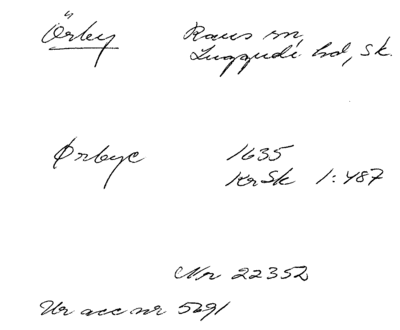 Örby Raus sn,
Luggude hd, Sk.
Ørbye 1635
KrSk 1:487
Nr 22352
Ur acc nr 5691